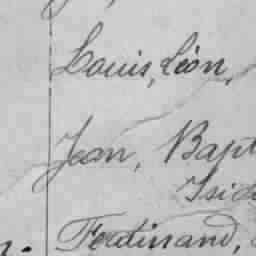 Louis, Léon,
Jean, Bapt
Isid
Ferdinand,